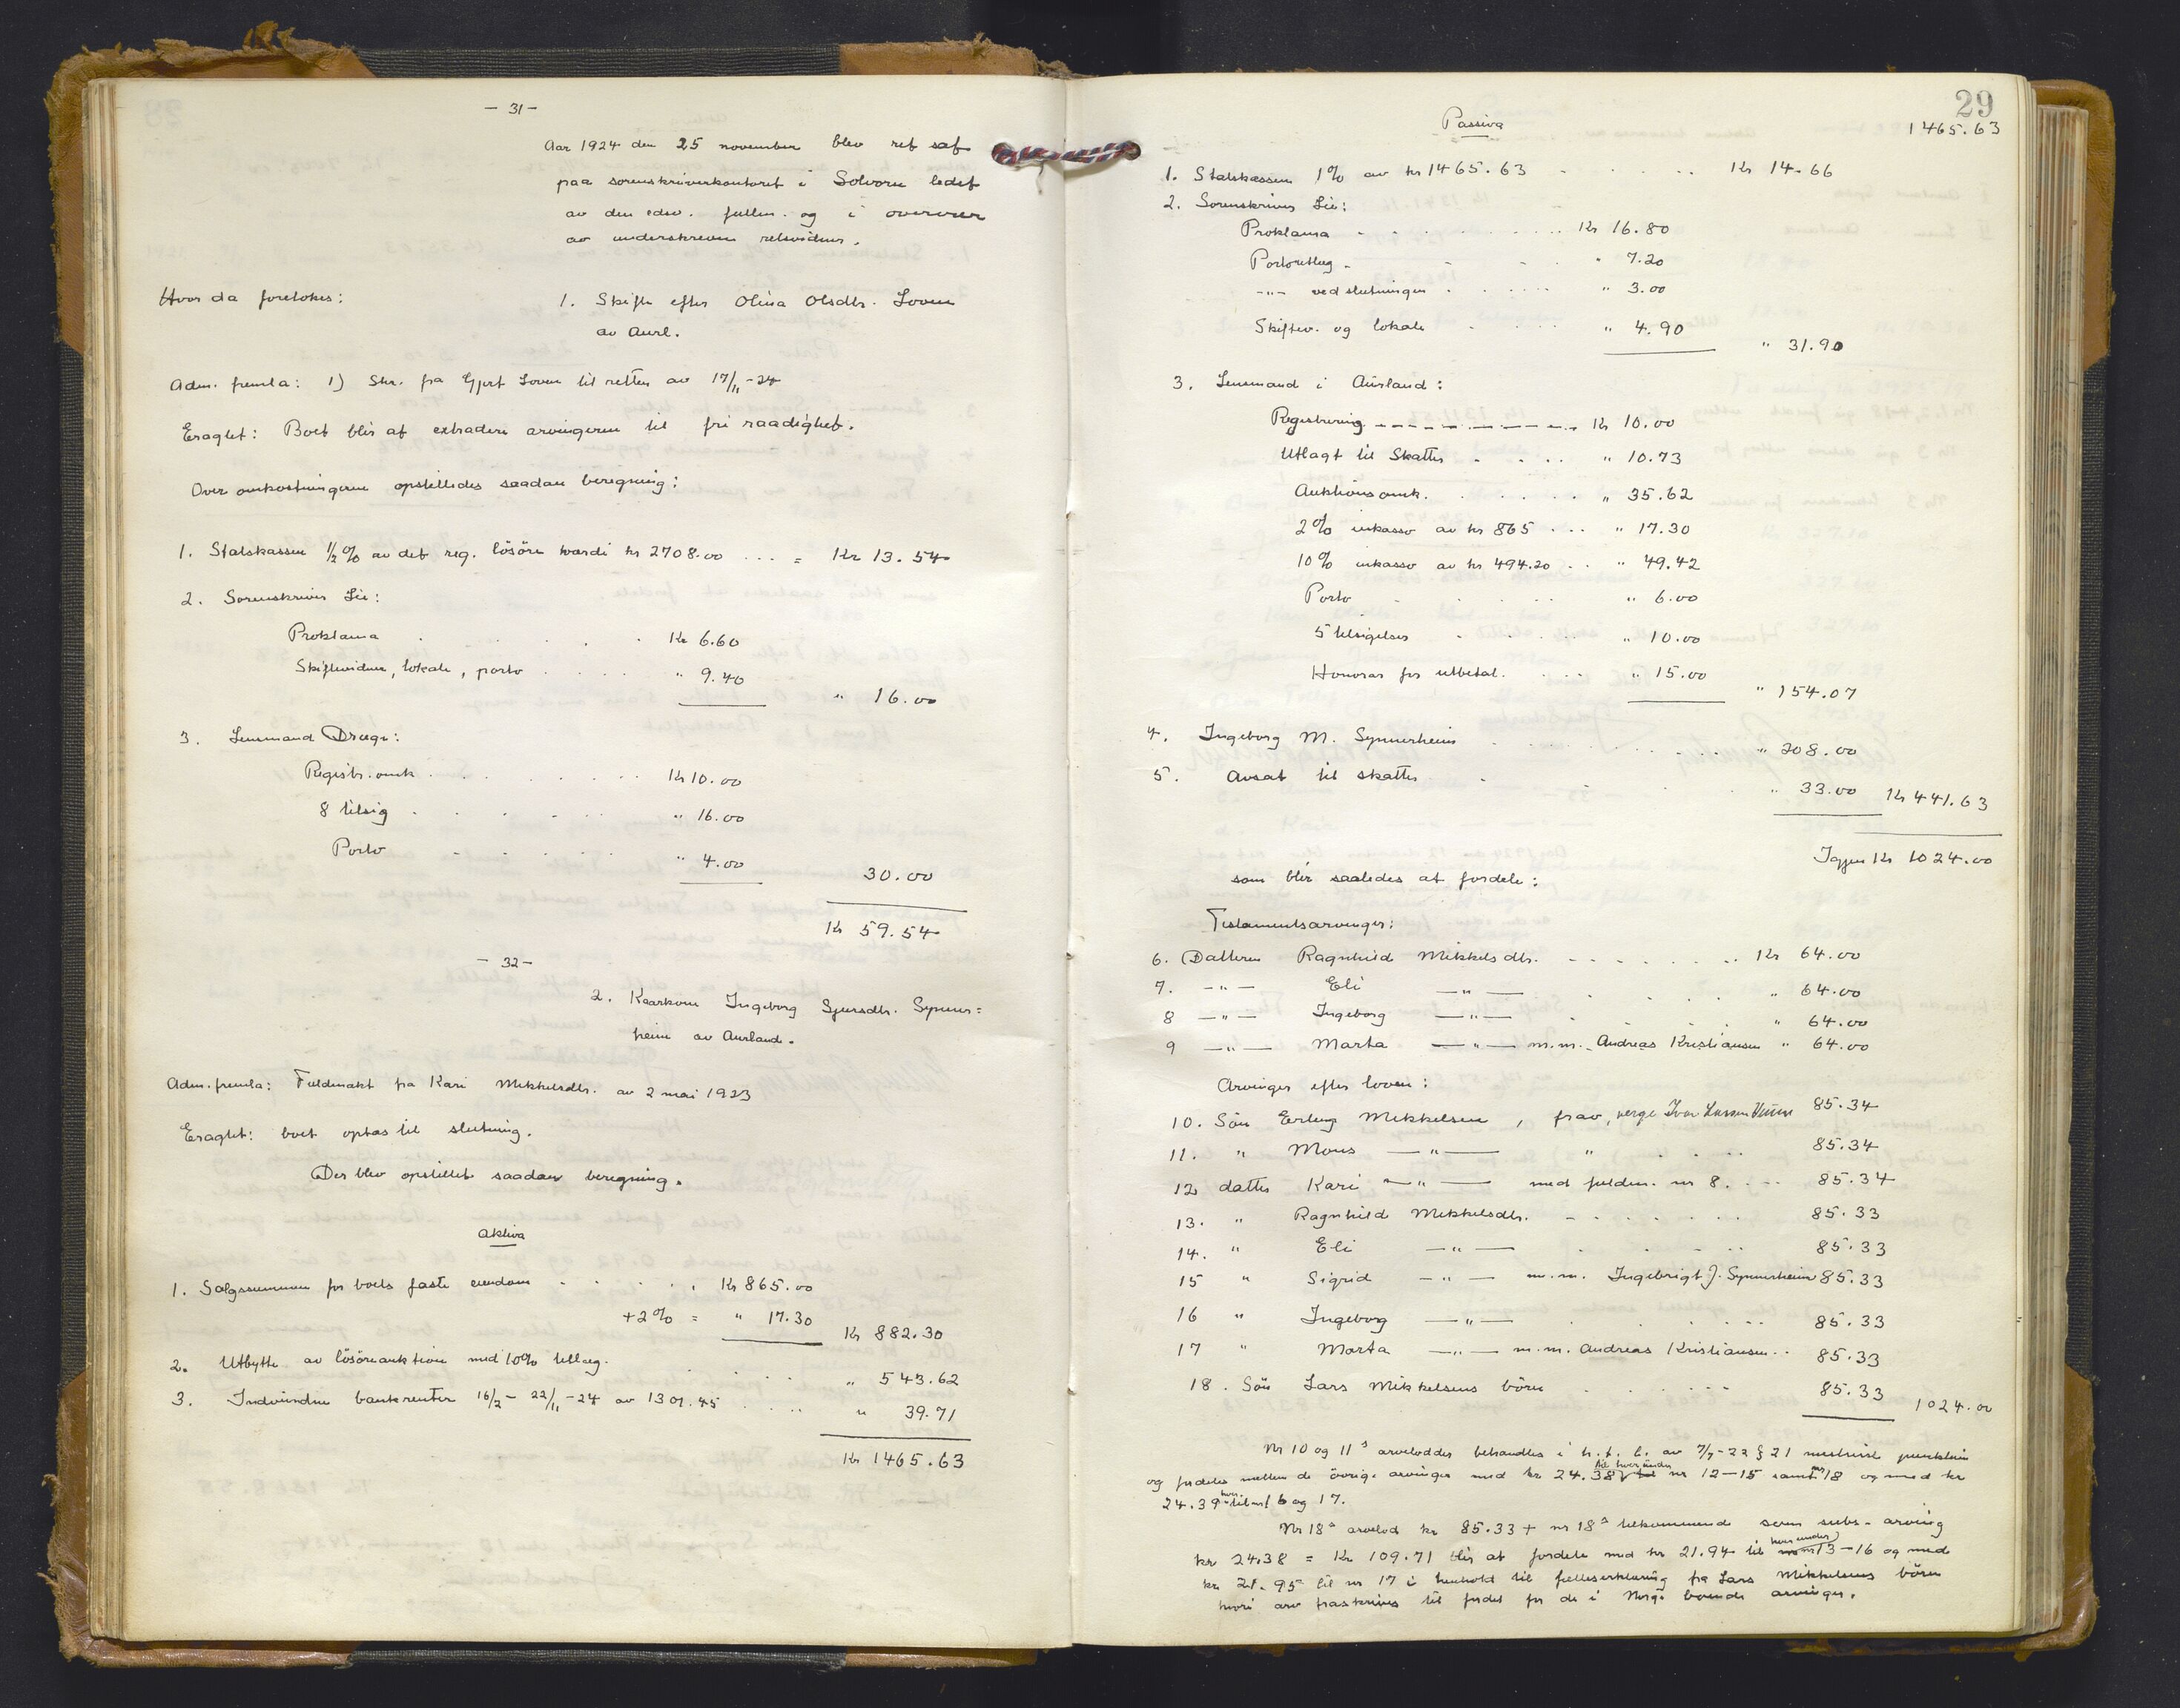 - 31 -
Aar 1924 den 25 november blev ret sat
paa sorenskriverkontoret i Solvorn ledet
av den edsv. fuldm. og i overvær
av underskrevne retsvidner.
Hvor da foretokes:
1. Skifte efter Olina Olsdtr. Loven
av Aurl.
Adm. fremla: 1) Skr. fra Gjert Loven til retten av 17/11-24
Eragtet: Boet blir at extradere arvingerne til fri raadighet.
Over omkostningerne opstilledes saadan beregning:
1. Statskassen 1/2 % av det reg. lösöre værdi kr 2708.00 ... = Kr 13.54
2. Sorenskriver Lie:
Proklama . . . . . Kr 6.60
Skiftevidner, lokale, porto . . . . " 9.40
" 16.00
3. Lensmand Dræge:
Registr. omk . . . . . . Kr 10.00
8 tilsig . . . . . " 16.00
Porto - . . . . " 4.00
30.00
Kr 59.54
- 32 -
2. Kaarkone Ingeborg Sjursdtr. Synner=
heim av Aurland.
Adm. fremla: Fuldmakt fra Kari Mikkelsdtr. av 2 mai 1923
Eragtet: boet optas til slutning.
Der blev opstillet saadan beregning.
Aktiva
1. Salgssummen for boets faste eiendom . . . . . Kr 865.00
+2% = " 17.30
Kr 882.30
2. Utbytte av lösöreauktion med 10% tillæg. . . . . " 543.62
3. Indvundne bankrenter 16/2 - 22/11 -24 av 1301.45 . . . . " 39.71
Kr 1465.63
29
Passiva
1465.63
1. Statskassen 1% av kr 1465.63 . . . . . Kr 14.66
2. Sorenskriver Lie:
Proklama . . . . . . . Kr 16.80
Portoutlæg . - - . " 7.20
-"- ved slutningen . . . . . " 3.00
Skiftev. og lokale . . . . " 4.90
" 31.90
3. Lensmand i Aurland:
Registrering - - - - - - - - Kr 10.00
Utlagt til Skatter . . . . " 10.73
Auktionsomk. . . . . . " 35.62
2% inkasso av kr 865 . . . " 17.30
10% inkasso av kr 494.20 . . " 49.42
Porto . . . . " 6.00
5 tilsigelser . . . . " 10.00
Honorar for utbetal. . . . . " 15.00
" 154.07
4. Ingeborg M. Synnerheim . . . . . . . . " 208.00
5. Avsat til skatter . . . . " 33.00 Kr 441.63
Igjen Kr 1024.00
som blir saaledes at fordele:
Testamentsarvinger:
6. Datteren Ragnhild Mikkelsdtr. - - - - - - Kr 64.00
7. -"- Eli -"- . . . . " 64.00
8 -"- Ingeborg -"- . . . " 64.00
9 -"- Marta -"- m.m. Andreas Kristiansen " 64.00
Arvinger efter loven:
10. Sön Erling Mikkelsen, frav, verge Ivar Larsen 85.34
11. " Mons -"- " . . . . 85.34
12 datter Kari -"- med fuldm. nr 8. . . . 85.34
13. " Ragnhild Mikkelsdtr. - . . . . . . 85.33
14. " Eli -"- . . . . . 85.33
15 " Sigrid -"- m.m. Ingebrigt J. Synnerheim 85.33
16 " Ingeborg -"- . . . . . 85.33
17 " Marta -"- m.m. Andreas Kristiansen . . 85.33
18. Sön Lars Mikkelsens börn . . . . . . 85.33
1024.00
Nr 10 og 11s arvelodder behandles i h. t. l. av 7/7-22 § 21 punktum
og fordeles mellem de övrige arvinger med kr 24.38 til hver under nr 12-15 samt nr 18 og med kr
24.39 hver til nr 16 og 17.
Nr 18s arvelod kr 85.33 + nr 18s tilkommende som subs. arving
kr 24.38 = Kr 109.71 blir at fordele med kr 21.94 til hver under nr 13-16 og med
kr 21.95 til nr 17 i henhold til fælleserklæring fra Lars Mikkelsens börn
hvori arv fraskrives til fordel for de i Norge boende arvinger.